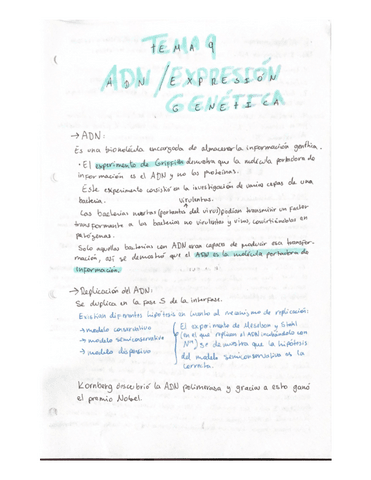 TEMA 9
ADN / EXPRESIÓN
GENÉTICA
→ ADN:
Es una biomolécula encargada de almacenar la información genética.
• El experimento de Griffith demuestra que la molécula portadora de
información es el ADN y no las proteínas.
Este experimento consistió en la investigación de varias cepas de una
bacteria.
virulentas.
Las bacterias muertas (portantes del virus) podían transmitir un factor
transformante a las bacterias no virulentas y vivas, convirtiéndolas en
patógenas.
Solo aquellas bacterias con ADN eran capaces de producir esa transfor-
mación, así se demostró que el ADN es la molécula portadora de
información.
→ Replicación del ADN:
Se duplica en la fase S de la interfase.
Existían diferentes hipótesis en cuanto al mecanismo de replicación:
→ modelo conservativo
→ modelo semiconservativo
→ modelo dispersivo
El experimento de Meselson y Stahl
(en el que replican el ADN incubándolo con
N¹⁴) se demuestra que la hipótesis
del modelo semiconservativo es la
correcta.
Kornberg descubrió la ADN polimerasa y gracias a esto ganó
el premio Nobel.